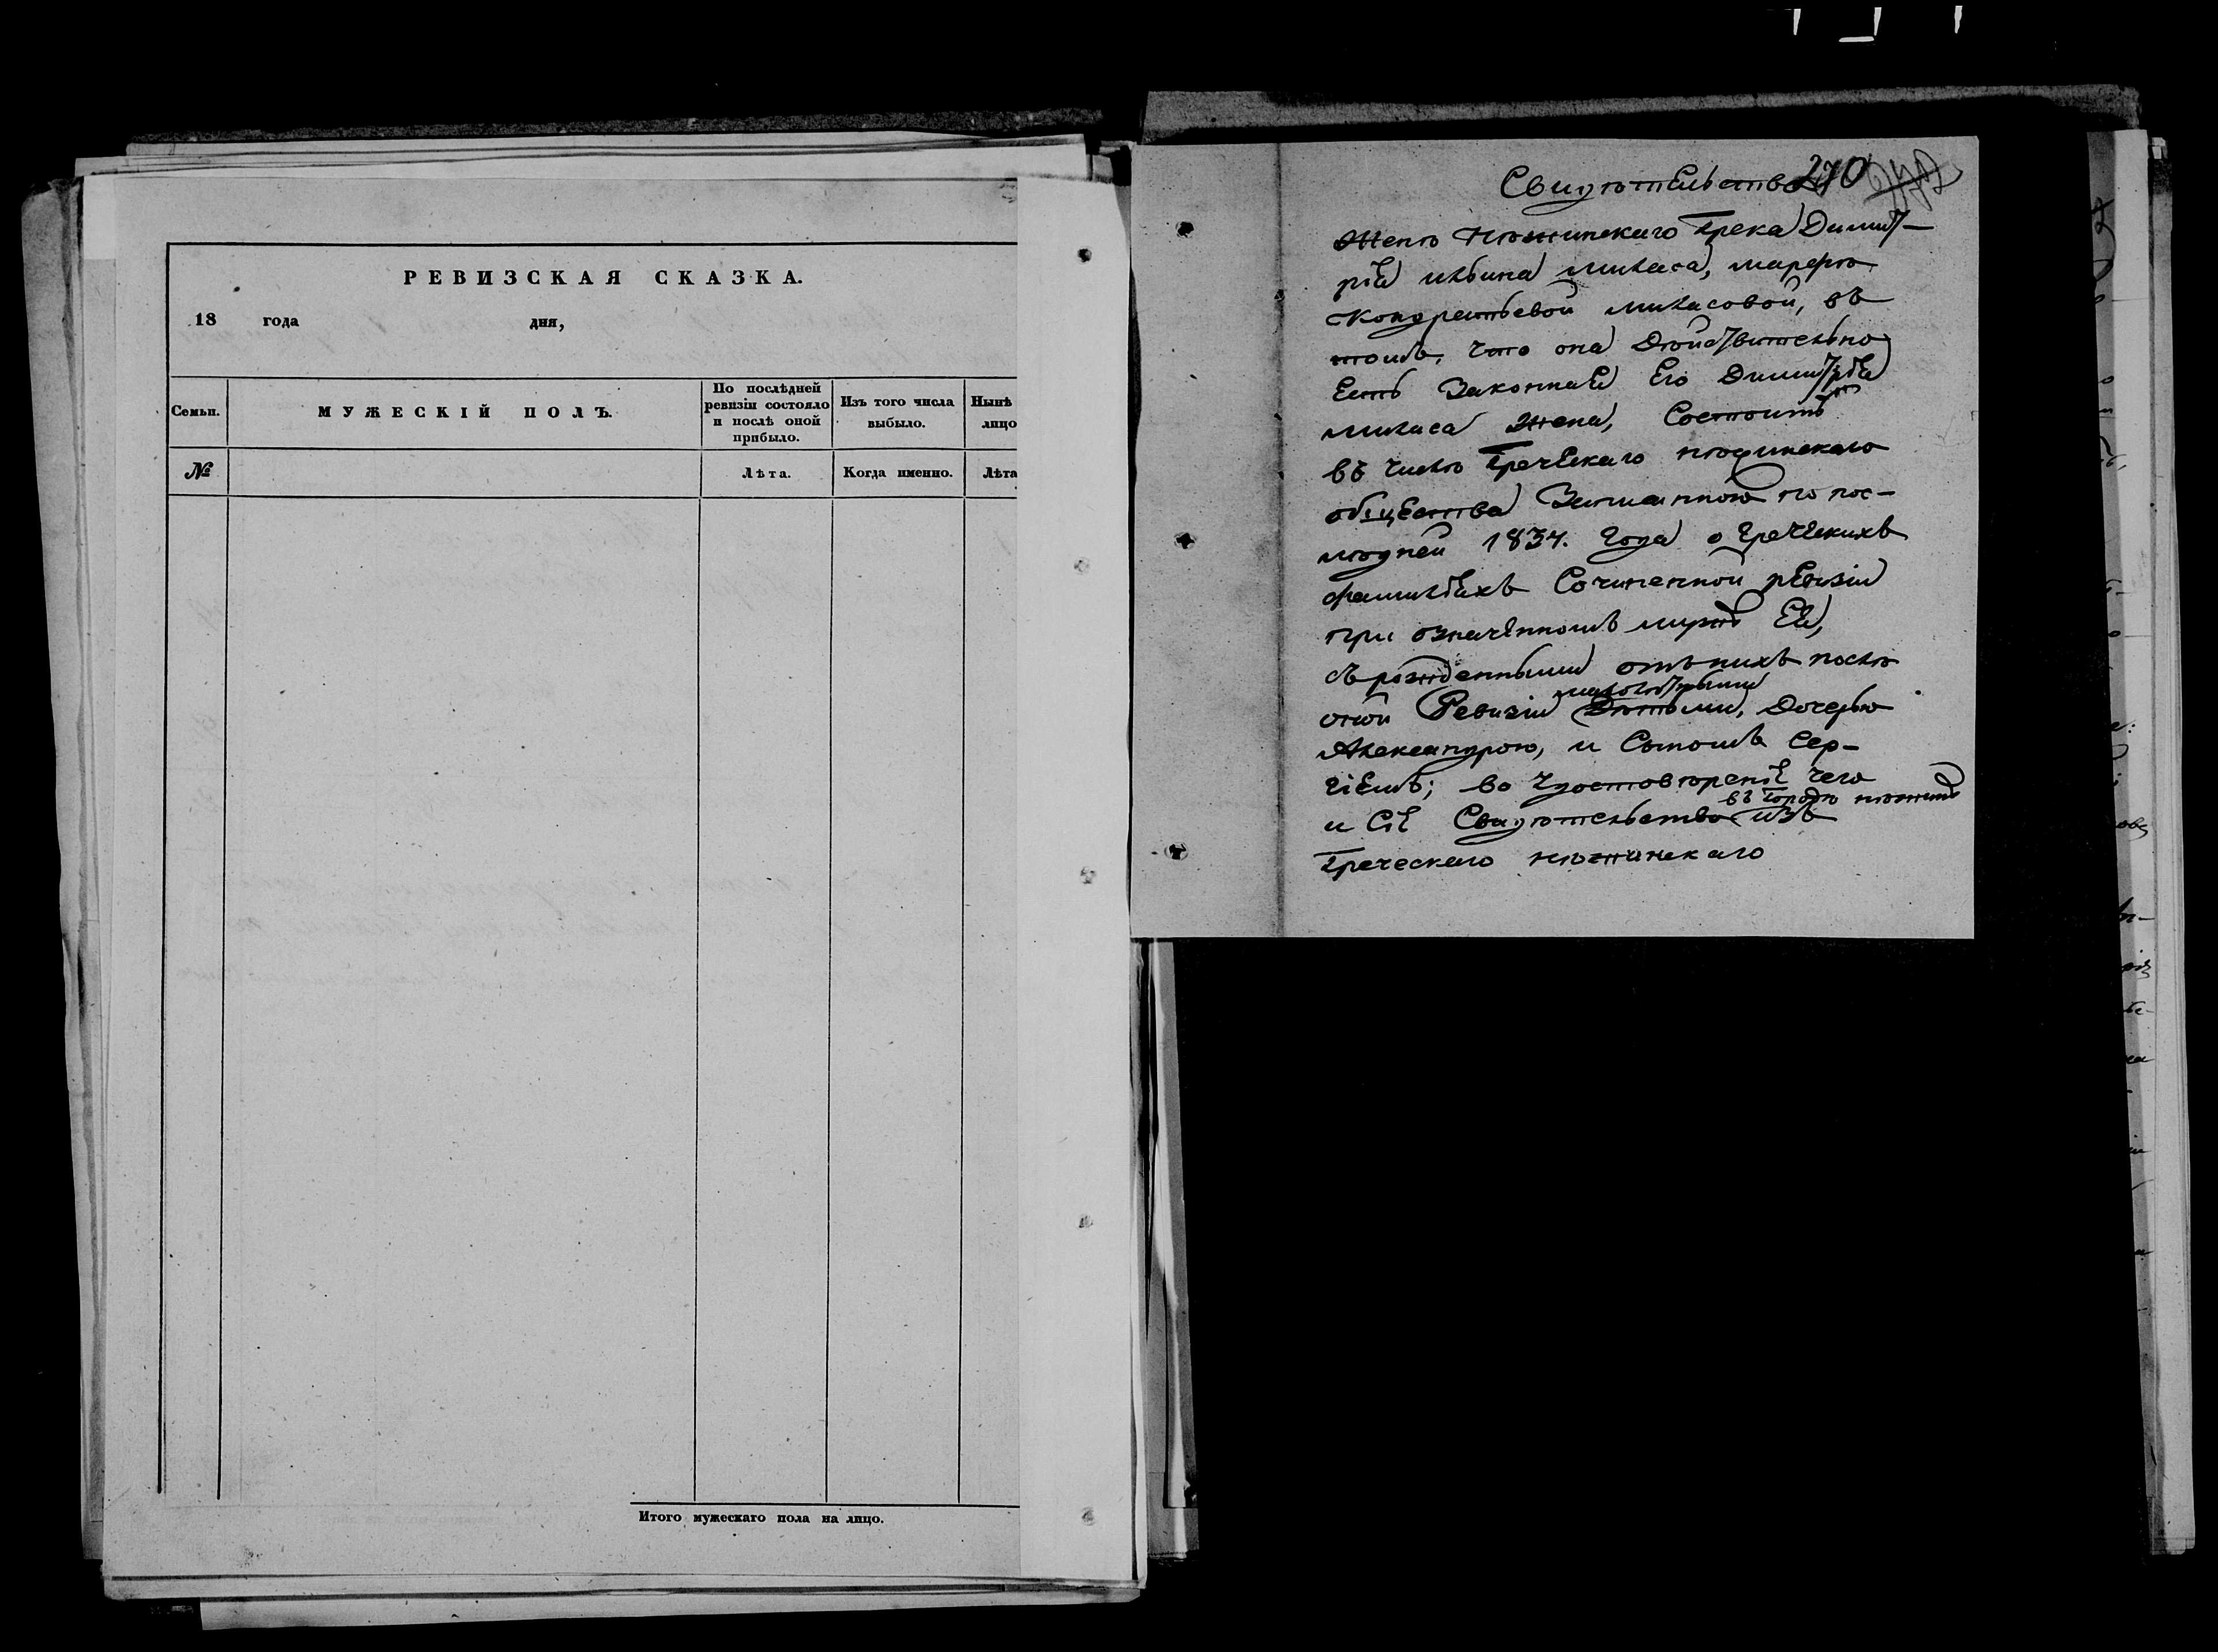 РЕВИЗСКАЯ СКАЗКА.
18 года дня,
Семьи.
МУЖЕСКІЙ ПОЛЪ.
По послѣдней
ревизіи состояло
и послѣ оной
прибыло.
Изъ того числа
выбыло.
Нынѣ
лицо
№
Лѣта.
Когда именно.
Лѣта
Итого мужескаго пола на лицо.
270
Свидѣтельство
Женѣ Нѣжинскаго Грека Димит-
рія Ильина Миласа, Марфѣ
Кондратьевой Миласовой, въ
томъ, что она дѣйствительно
есть законная его Димитрія
Миласа жена, состоитъ
въ числѣ Греческаго Нѣжинскаго
общества Записанною по пос-
лѣдней 1834. года о Греческихъ
фамиліяхъ Сочиненной ревизіи
при означенномъ мужѣ Ея,
съ рожденными отъ нихъ послѣ
оной Ревизіи малолѣтными Дѣтьми, Дочерью
Александрою, и Сыномъ Сер-
гіемъ; во удостовѣреніе чего
и Сіе Свидѣтельство въ городѣ Нѣжинѣ изъ
Греческаго Нѣжинскаго